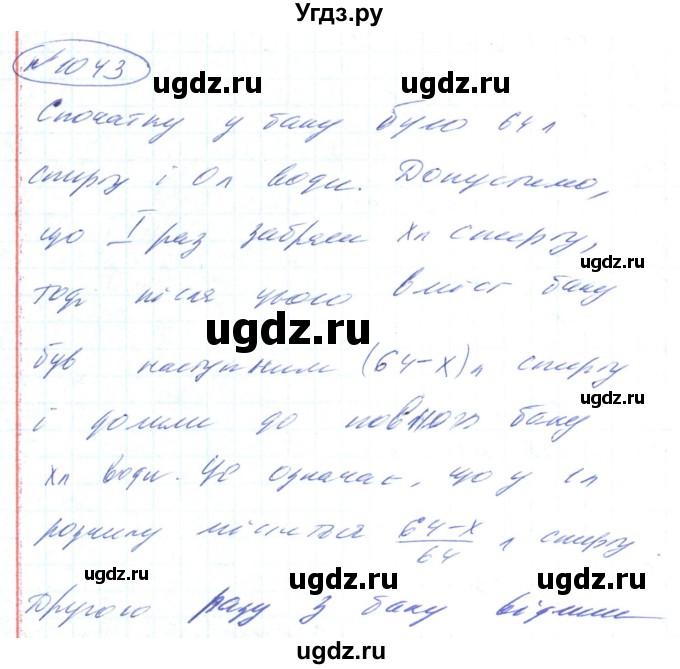 Угдз.ру
№ 1043
ugdz.ru ugdz.ru
Спочатку у баку було 64 л
спирту і 0 л води. Допустимо,
що I раз забрали xл спирту,
ugdz.ru
тоді після цього вміст баку
ugdz.ru
був наступним (64-x)л спирту
ugdz.ru
і долили до повного баку
xл води. Це означає, що у 1л
розчину міститься 64-x/64 л спирту
ugdz.ru ugdz.ru ugdz.ru
Другого разу з баку відлили